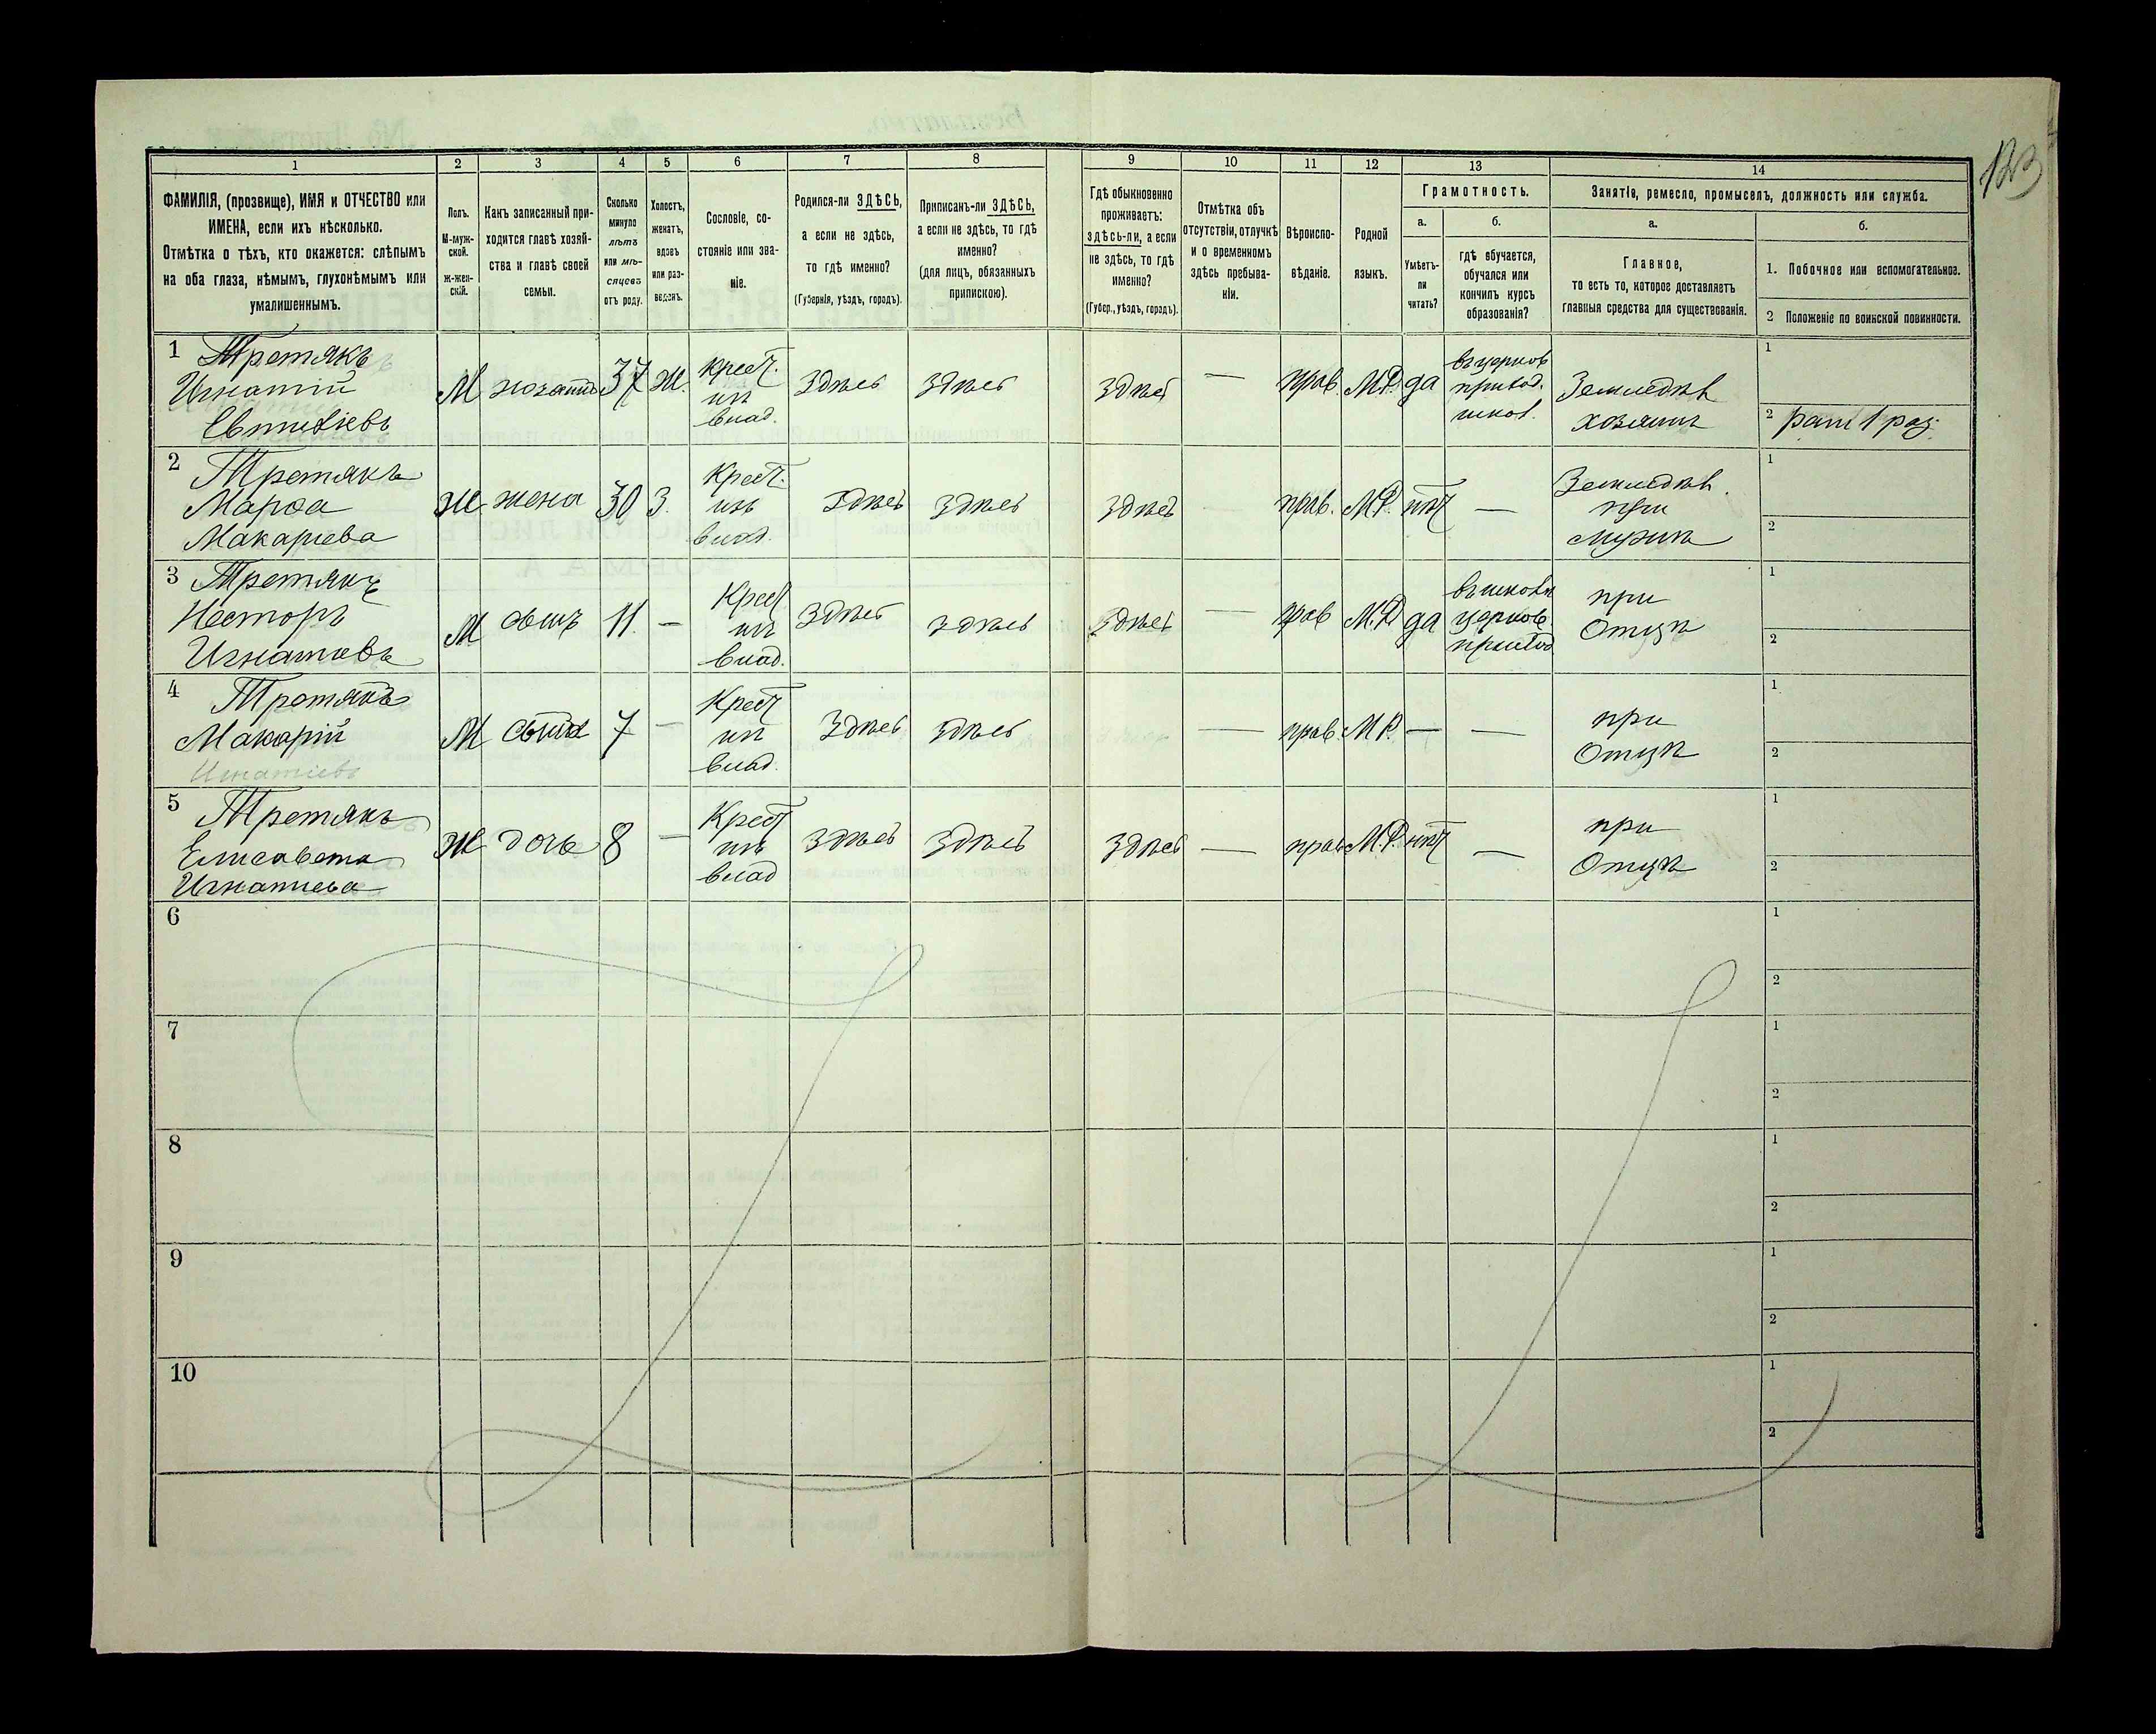 123
1 2 3 4 5 6 7 8 9 10 11 12 13 14
ФАМИЛІЯ, (прозвище), ИМЯ и ОТЧЕСТВО или
ИМЕНА, если ихъ нѣсколько.
Отмѣтка о тѣхъ, кто окажется: слѣпымъ
на оба глаза, нѣмымъ, глухонѣмымъ или
умалишеннымъ.
Полъ.
М-муж-
ской.
Ж-жен-
скій.
Какъ записанный при-
ходится главѣ хозяй-
ства и главѣ своей
семьи.
Сколько
минуло
лѣтъ
или мѣ-
сяцевъ
отъ роду.
Холостъ,
женатъ,
вдовъ
или раз-
веденъ.
Сословіе, со-
стояніе или зва-
ніе.
Родился-ли ЗДѢСЬ,
а если не здѣсь,
то гдѣ именно?
(Губернія, уѣздъ, городъ).
Приписанъ-ли ЗДѢСЬ,
а если не здѣсь, то гдѣ
именно?
(для лицъ, обязанныхъ
припискою).
Гдѣ обыкновенно
проживаетъ:
здѣсь-ли, а если
не здѣсь, то гдѣ
именно?
(Губер., уѣздъ, городъ).
Отмѣтка объ
отсутствіи, отлучкѣ
и о временномъ
здѣсь пребыва-
ніи.
Вѣроиспо-
вѣданіе.
Родной
языкъ.
Грамотность.
а.
Умѣетъ-
ли
читать?
б.
гдѣ обучается,
обучался или
кончилъ курсъ
образованія?
Занятіе, ремесло, промыселъ, должность или служба.
а.
Главное,
то есть то, которое доставляетъ
главныя средства для существованія.
б.
1. Побочное или вспомогательное.
2 Положеніе по воинской повинности.
1 Третякъ
Игнатій
Евтихіевъ
М
хозяинъ
37
Ж.
Крест.
изъ
влад.
здѣсь
здѣсь
здѣсь
—
прав.
М.Р.
да
въ церков
приход.
школ.
Земледѣл
хозяинъ
1
2 рат 1 раз.
2 Третякъ
Марѳа
Макариева
Ж
жена
30
З.
Крест.
изъ
влад.
здѣсь
здѣсь
здѣсь
—
прав.
М.Р.
нѣт
—
Земледѣл.
при
мужѣ
1
2
3 Третякъ
Несторъ
Игнатиевъ
М
сынъ
11.
—
Крест
изъ
влад.
здѣсь
здѣсь
здѣсь
—
прав
М.Р.
да
въ школѣ
церков.
приход
при
Отцѣ
1
2
4 Третякъ
Макарій
Игнатіевъ
М
сынъ
7
—
Крест
изъ
влад.
здѣсь
здѣсь
—
прав.
М.Р.
—
—
при
Отцѣ
1
2
5 Третякъ
Елисавета
Игнатиева
Ж
дочь
8
—
Крест
изъ
влад
здѣсь
здѣсь
здѣсь
—
прав
М.Р.
нѣт
—
при
Отцѣ
1
2
6
1
2
7
1
2
8
1
2
9
1
2
10
1
2